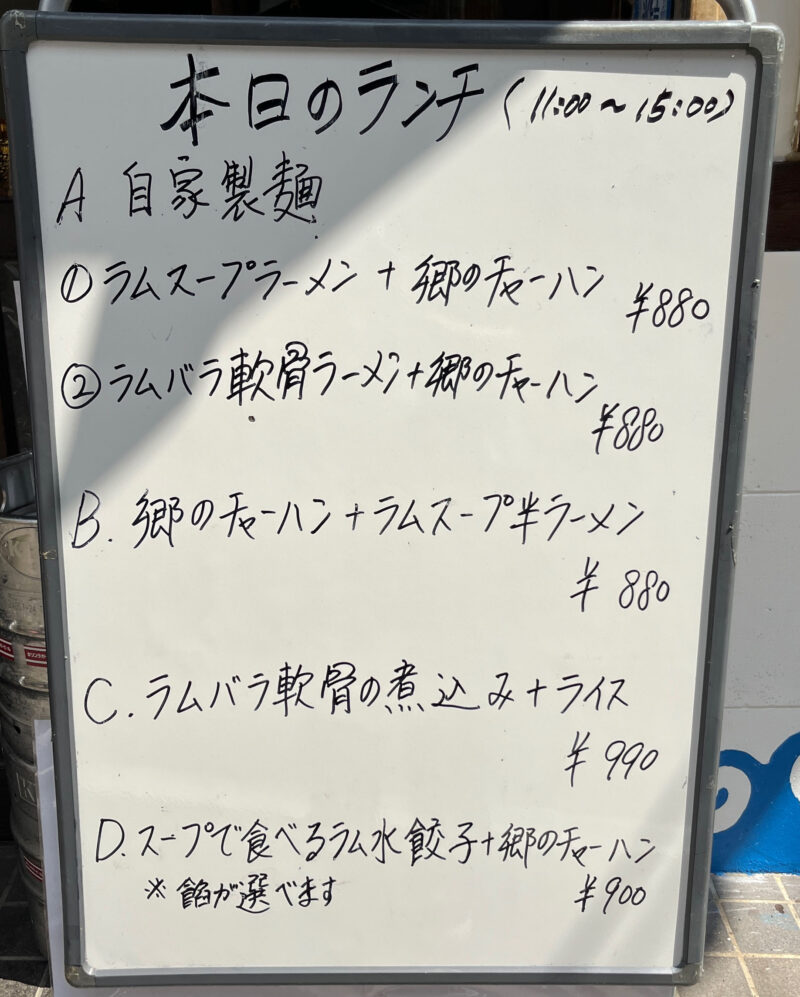 本日のランチ(11:00〜15:00)
A 自家製麺
①ラムスープラーメン+郷のチャーハン
¥880
②ラムバラ軟骨ラーメン+郷のチャーハン
¥880
B.郷のチャーハン+ラムスープ半ラーメン
¥880
C.ラムバラ軟骨の煮込み+ライス
¥990
D.スープで食べるラム水餃子+郷のチャーハン
※餡が選べます
¥900